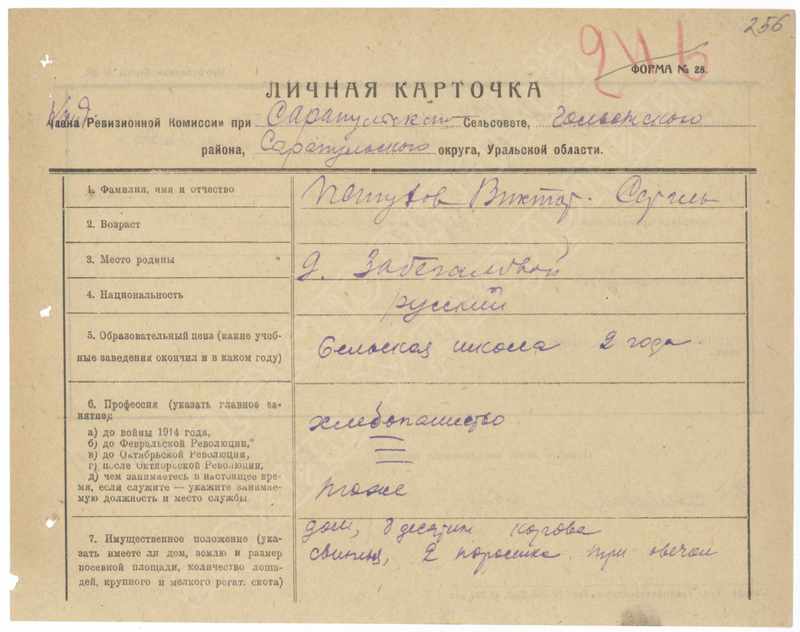 256
246
ФОРМА № 28.
ЛИЧНАЯ КАРТОЧКА
Члена Ревизионной Комиссии при Сарапульском Сельсовете, гольянского
района, Сарапульского округа, Уральской области.
1. Фамилия, имя и отчество
Пастухов Виктор. Сергеев
2. Возраст
3. Место родины
д. Забегаловой
4. Национальность
русский
5. Образовательный ценз (какие учеб-
ные заведения окончил и в каком году)
Сельская школа 2 года.
6. Профессия (указать главное за-
нятие):
а) до войны 1914 года,
б) до Февральской Революции,
в) до Октябрьской Революции,
г) после Октябрьской Революции,
д) чем занимаетесь в настоящее вре-
мя, если служите — укажите занимае-
мую должность и место службы
хлебопашество
тоже
7. Имущественное положение (ука-
зать имеете ли дом, землю и размер
посевной площади, количество лоша-
дей, крупного и мелкого рогат. скота)
дом, 8 десятин корова
свинья, 2 поросенка три овечки